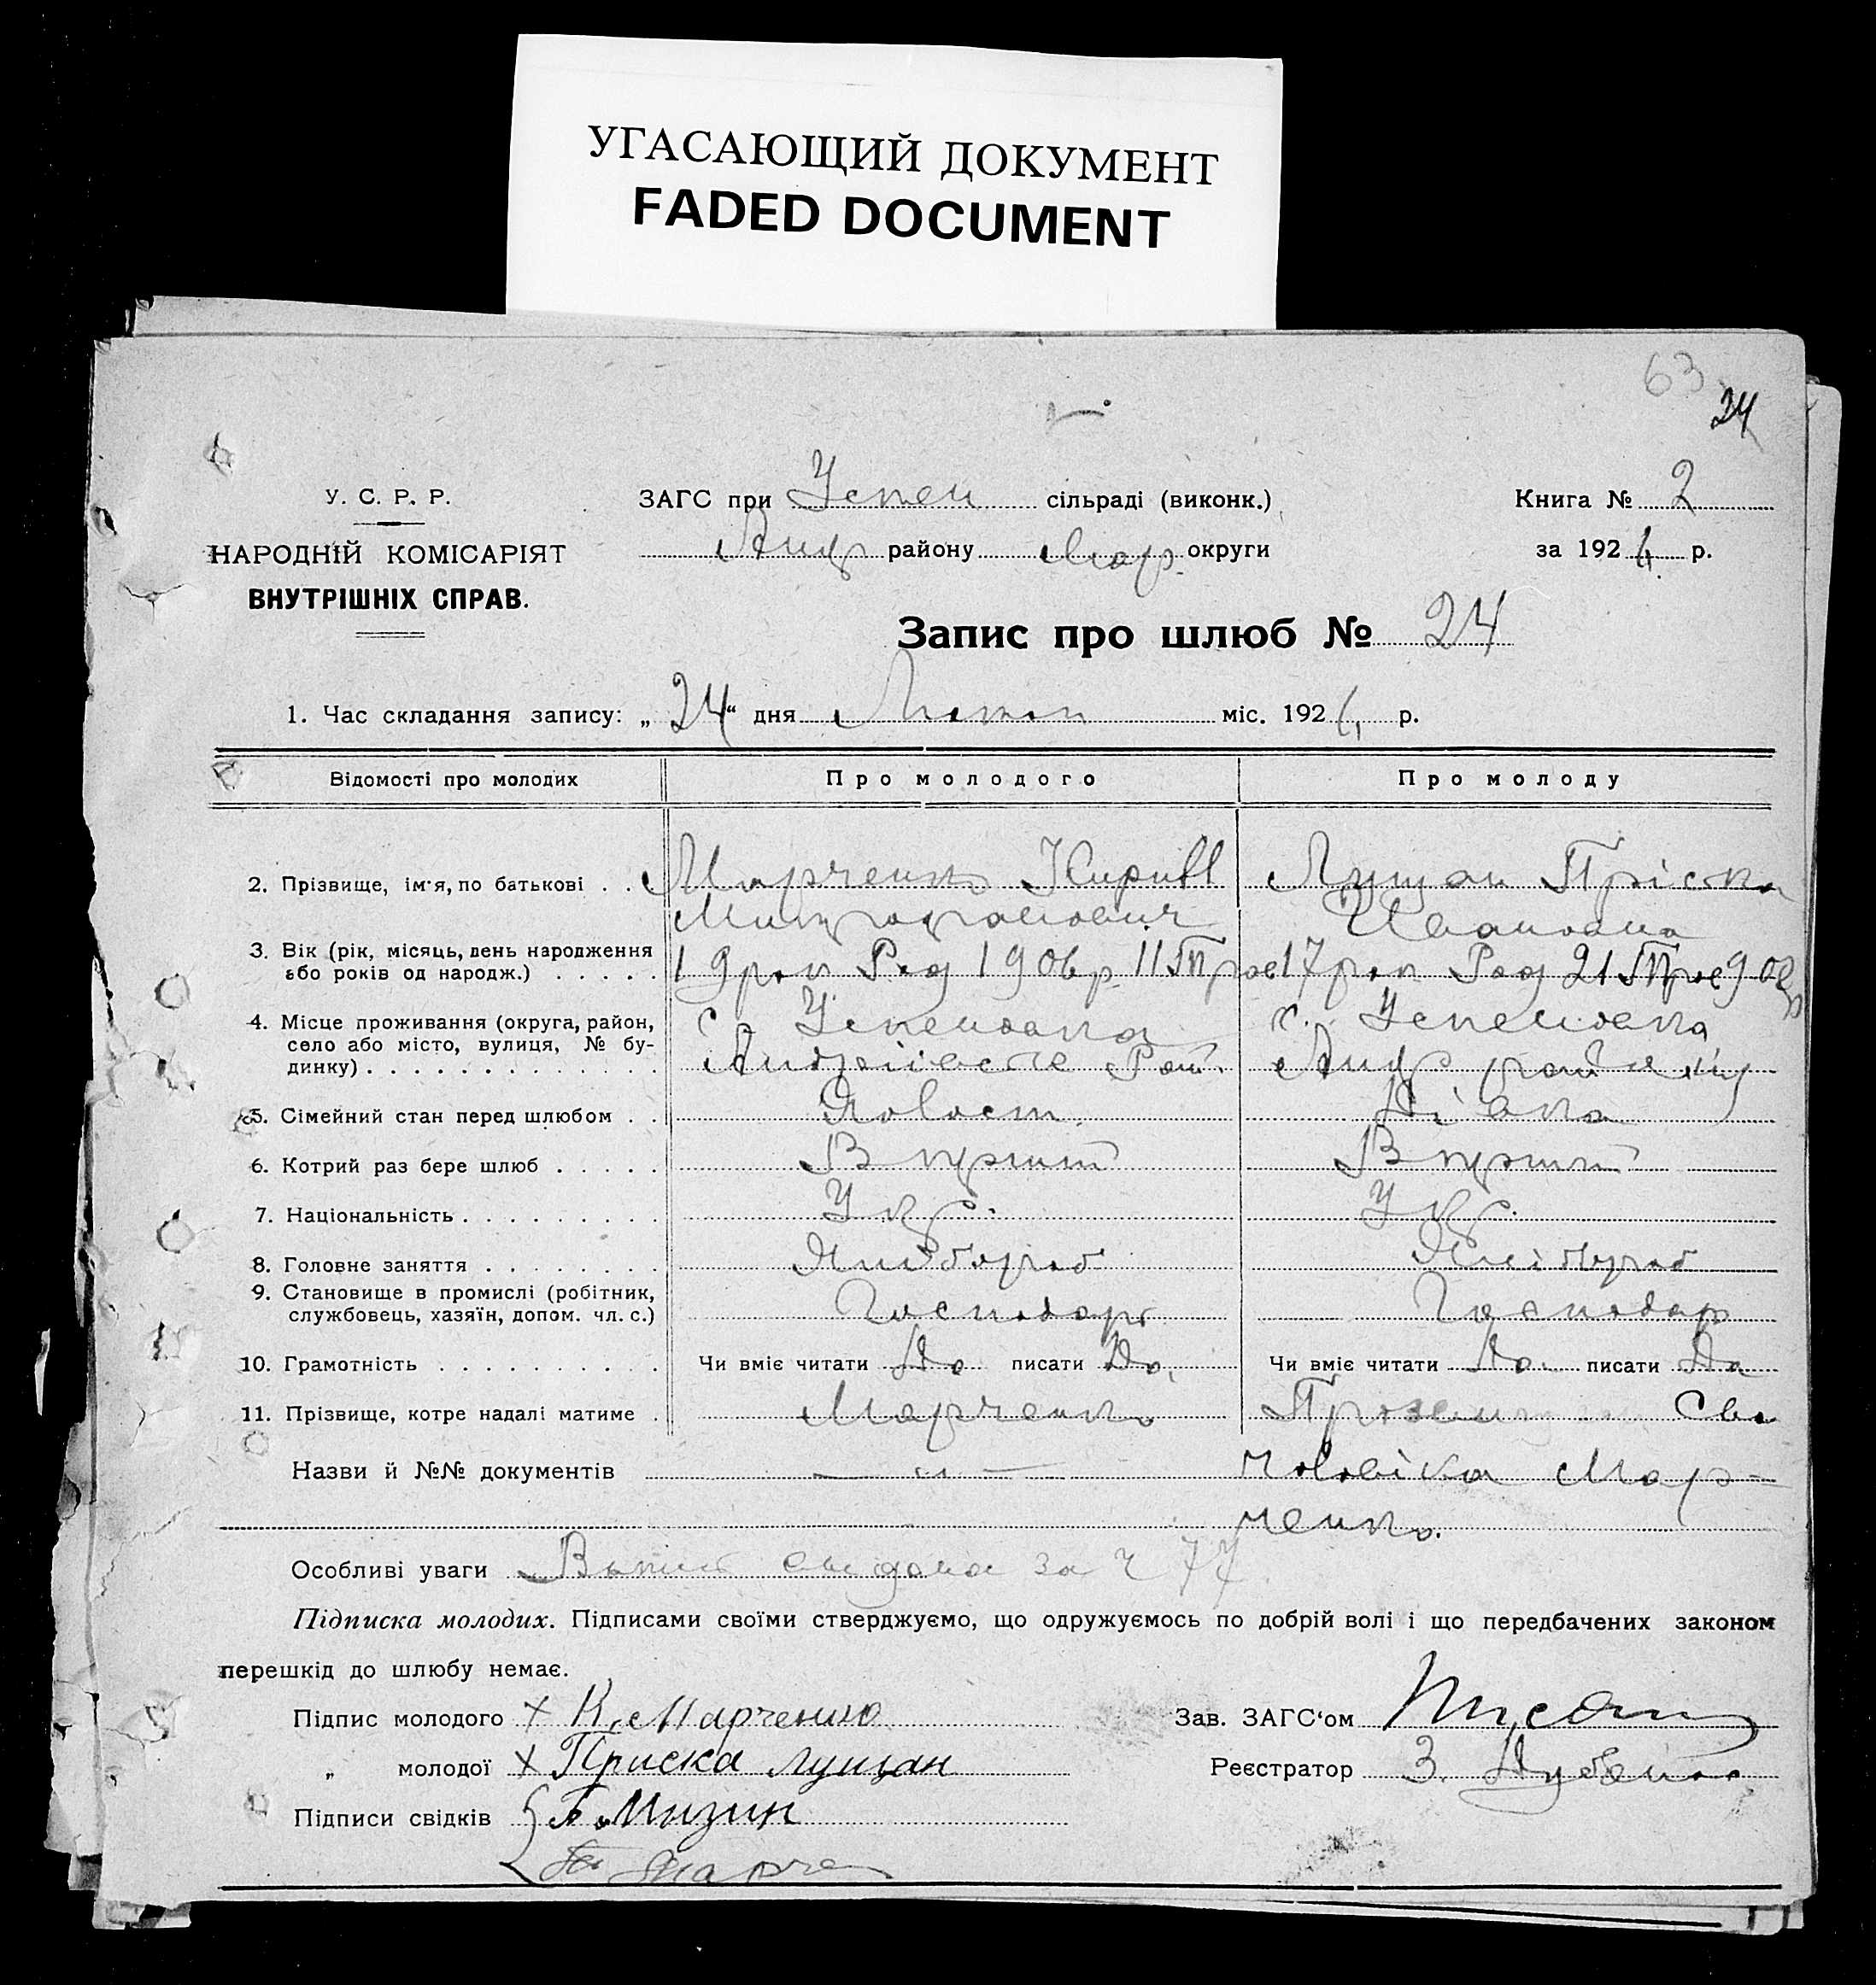 УГАСАЮЩИЙ ДОКУМЕНТ
FADED DOCUMENT
63
24
У. С. Р. Р.
ЗАГС при Успен сільраді (виконк.)
Книга № 2
НАРОДНІЙ КОМІСАРІЯТ
Андр району Мар. округи
за 192 р.
ВНУТРІШНІХ СПРАВ.
Запис про шлюб № 24
1. Час складання запису: „ 24 “ дня міс. 192 р.
Відомості про молодих
Про молодого
Про молоду
2. Прізвище, ім'я, по батькові . . Марченко Кирилл Лущан Пріска
Митрофанович Ивановна
3. Вік (рік, місяць, день народження
або років од народж.) . . . . . 19 рок Род 190 р 11 17 рок Род 21 90
4. Місце проживання (округа, район, с. Успеновка с. Успеновка
село або місто, вулиця, № бу-
динку) . . . . . . . . . . . . . Андреівське Рай. Андр
5. Сімейний стан перед шлюбом . . Холост. Дівка
6. Котрий раз бере шлюб . . . . . В перший В перший
7. Національність . . . . . . . . . Укр. Укр.
8. Головне заняття . . . . . . . . Хлібороб Хлібороб
9. Становище в промислі (робітник,
службовець, хазяїн, допом. чл. с.) Господарь Господар
10. Грамотність . . . . . . . . . . Чи вміє читати Да писати Да, Чи вміє читати Да. писати Да
11. Прізвище, котре надалі матиме . Марченко
Назви й №№ документів — " — чоловіка Мар=
ченко.
Особливі уваги за ч 77
Підписка молодих. Підписами своїми стверджуємо, що одружуємось по добрій волі і що передбачених законом
перешкід до шлюбу немає.
Підпис молодого х К. Марченко
Зав. ЗАГС‘ом
„ молодої х Приска Лущан
Реєстратор З.
Підписи свідків Мизин